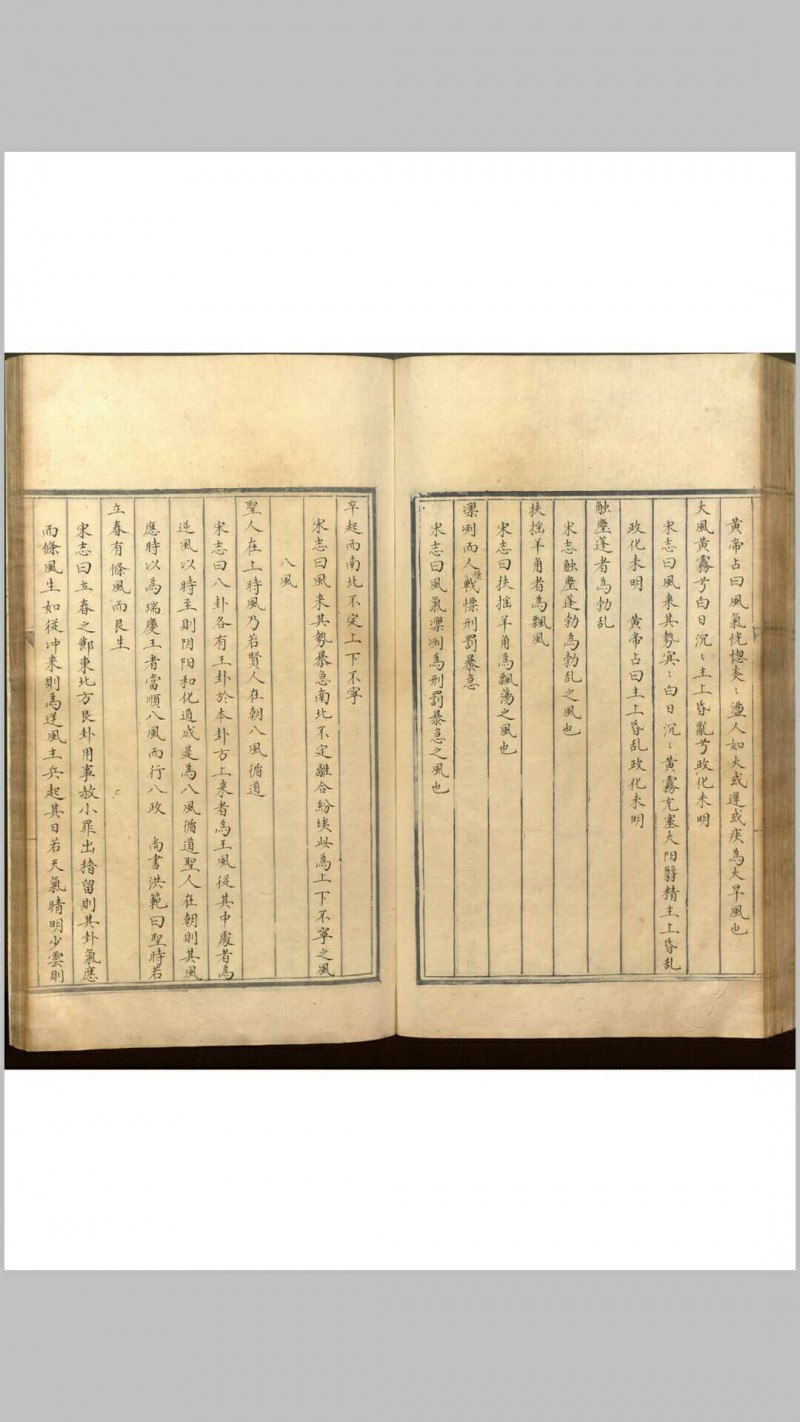 黃帝占曰風氣恍惚炎〻盪人如火或遲或疾為大旱風也
大風黃霧兮白日沉〻主上昏亂兮政化未明
宋志曰風来其勢冥〻白日沉〻黃霧充塞大阳翳精主上昏乱
政化未明　黃帝占曰主上昏乱政化未明
触塵蓬者為勃乱
宋志触塵蓬勃為勃乱之風也
扶揺羊角者為飄風
宋志曰扶揺羊角為飄蕩之風也
凛冽而人戰慄刑罰暴急
宋志曰風氣凛冽為刑罰暴急之風也
卒起而南北不定上下不寧
宋志曰風来其勢暴急南北不定離合紛埃此為上下不寧之風
八風
聖人在上時風乃若賢人在朝八風循道
宋志曰八卦各有王卦於本卦方上来者為王風従其中處者為
逆風以時至則阴阳和化道成是為八風循道聖人在朝則其風
應時以為瑞慶王者當順八風而行八政　尚書洪範曰聖時若
立春有條風而艮生
宋志曰立春之鄭東北方艮卦用事赦小罪出稽留則其卦氣應
而條風生如従冲来則為逆風主兵起其日若天氣晴明少雲則